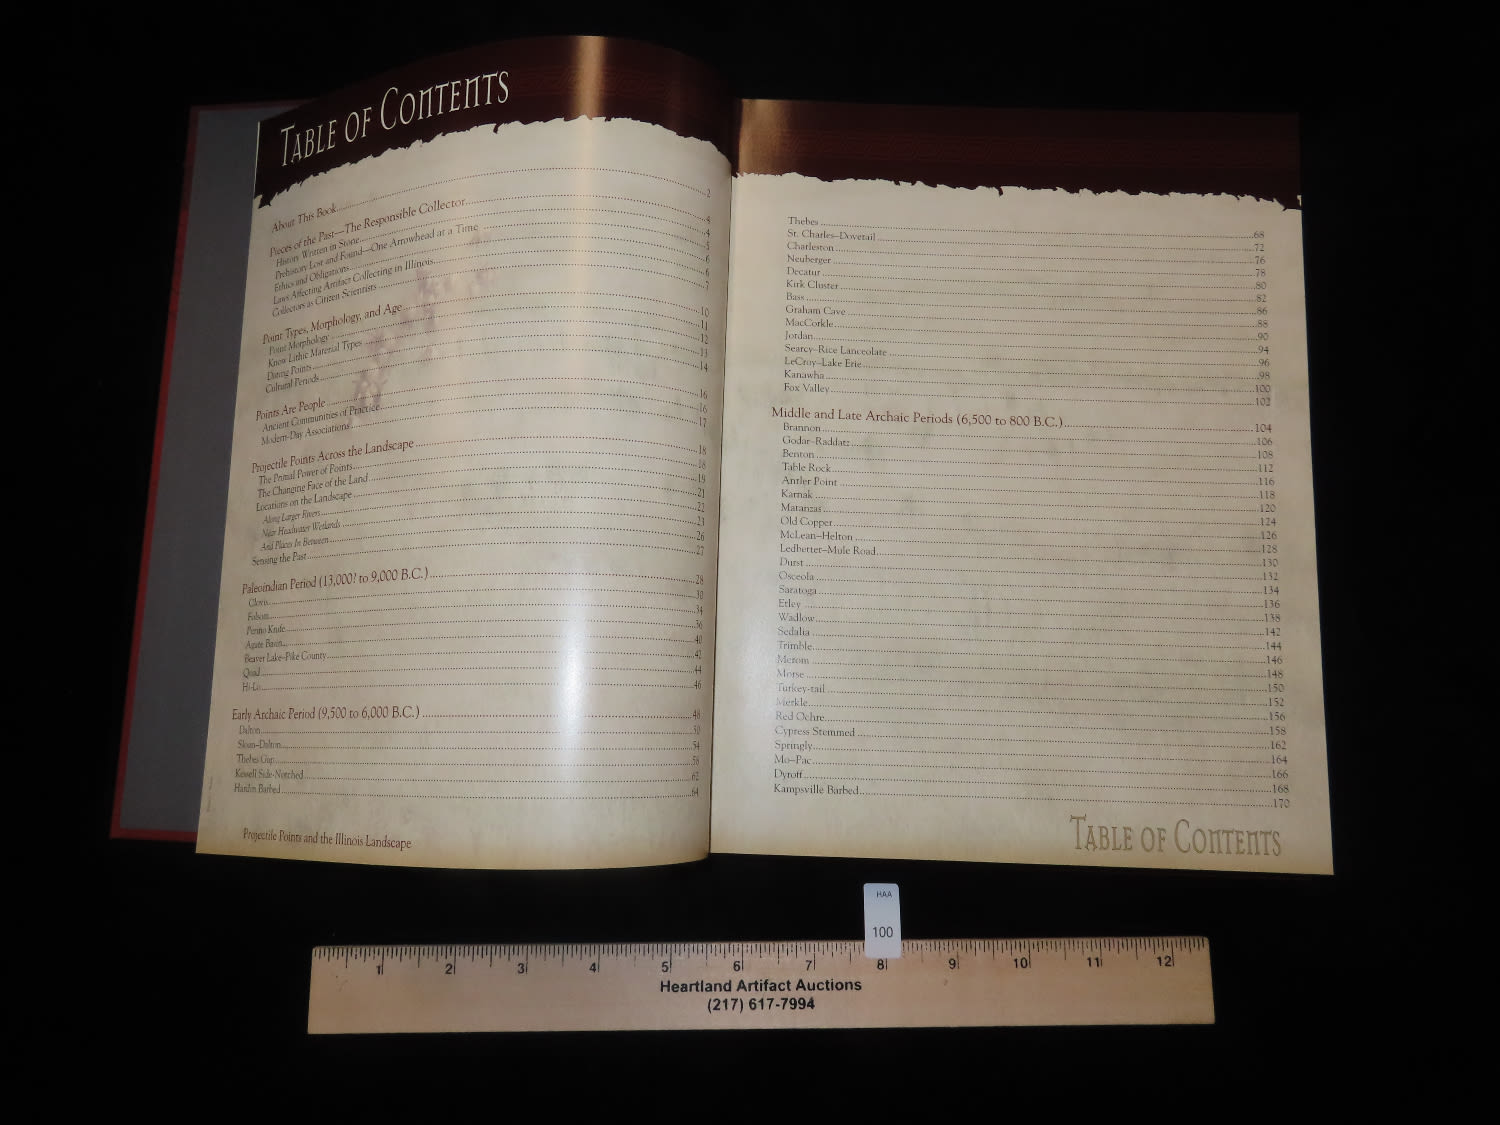 TABLE OF CONTENTS
About This Book 2
Pieces of the Past—The Responsible Collector 4
History Written in Stone 4
Prehistory Lost and Found—One Arrowhead at a Time 5
Ethics and Obligations 6
Laws Affecting Artifact Collecting in Illinois 6
Collectors as Citizen Scientists 7
Point Types, Morphology, and Age 10
Point Morphology 11
Know Lithic Material Types 12
Dating Points 13
Cultural Periods 14
Points Are People 16
Ancient Communities of Practice 16
Modern-Day Associations 17
Projectile Points Across the Landscape 18
The Primal Power of Points 18
The Changing Face of the Land 19
Locations on the Landscape 21
Along Larger Rivers 22
Near Headwater Wetlands 23
And Places In Between 26
Sensing the Past 27
Paleoindian Period (13,000? to 9,000 B.C.) 28
Clovis 30
Folsom 34
Perino Knife 36
Agate Basin 40
Beaver Lake–Pike County 42
Quad 44
Hi-Lo 46
Early Archaic Period (9,500 to 6,000 B.C.) 48
Dalton 50
Sloan–Dalton 54
Thebes Gap 58
Kessell Side-Notched 62
Hardin Barbed 64
Projectile Points and the Illinois Landscape
Thebes 68
St. Charles–Dovetail 72
Charleston 76
Neuberger 78
Decatur 80
Kirk Cluster 82
Bass 86
Graham Cave 88
MacCorkle 90
Jordan 94
Searcy–Rice Lanceolate 96
LeCroy–Lake Erie 98
Kanawha 100
Fox Valley 102
Middle and Late Archaic Periods (6,500 to 800 B.C.) 104
Brannon 106
Godar–Raddatz 108
Benton 112
Table Rock 116
Antler Point 118
Karnak 120
Matanzas 124
Old Copper 126
McLean–Helton 128
Ledbetter–Mule Road 130
Durst 132
Osceola 134
Saratoga 136
Etley 138
Wadlow 142
Sedalia 144
Trimble 146
Merom 148
Morse 150
Turkey-tail 152
Merkle 156
Red Ochre 158
Cypress Stemmed 162
Springly 164
Mo–Pac 166
Dyroff 168
Kampsville Barbed 170
TABLE OF CONTENTS
HAA
100
1 2 3 4 5 6 7 8 9 10 11 12
Heartland Artifact Auctions
(217) 617-7994